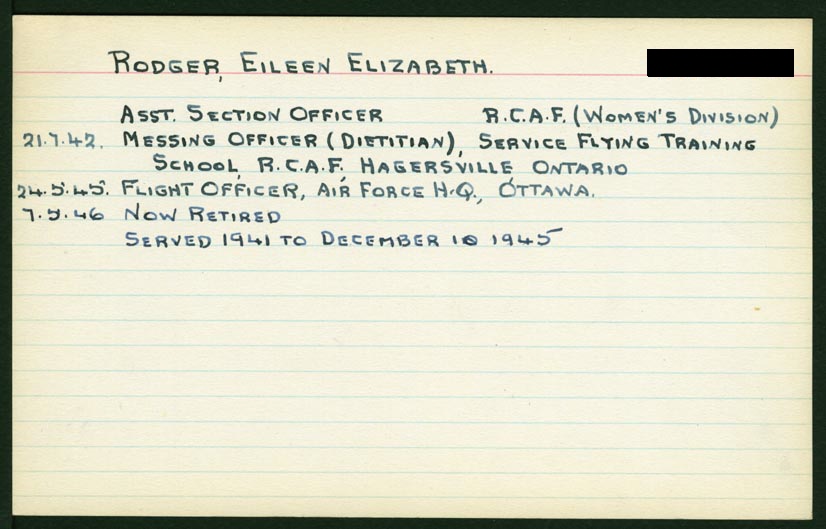 RODGER, EILEEN ELIZABETH.
ASST. SECTION OFFICER R.C.A.F. (WOMEN'S DIVISION)
21.7.42. MESSING OFFICER (DIETITIAN), SERVICE FLYING TRAINING
SCHOOL, R.C.A.F. HAGERSVILLE ONTARIO
24.5.45. FLIGHT OFFICER, AIR FORCE H.Q., OTTAWA.
7.5.46 NOW RETIRED
SERVED 1941 TO DECEMBER 10 1945